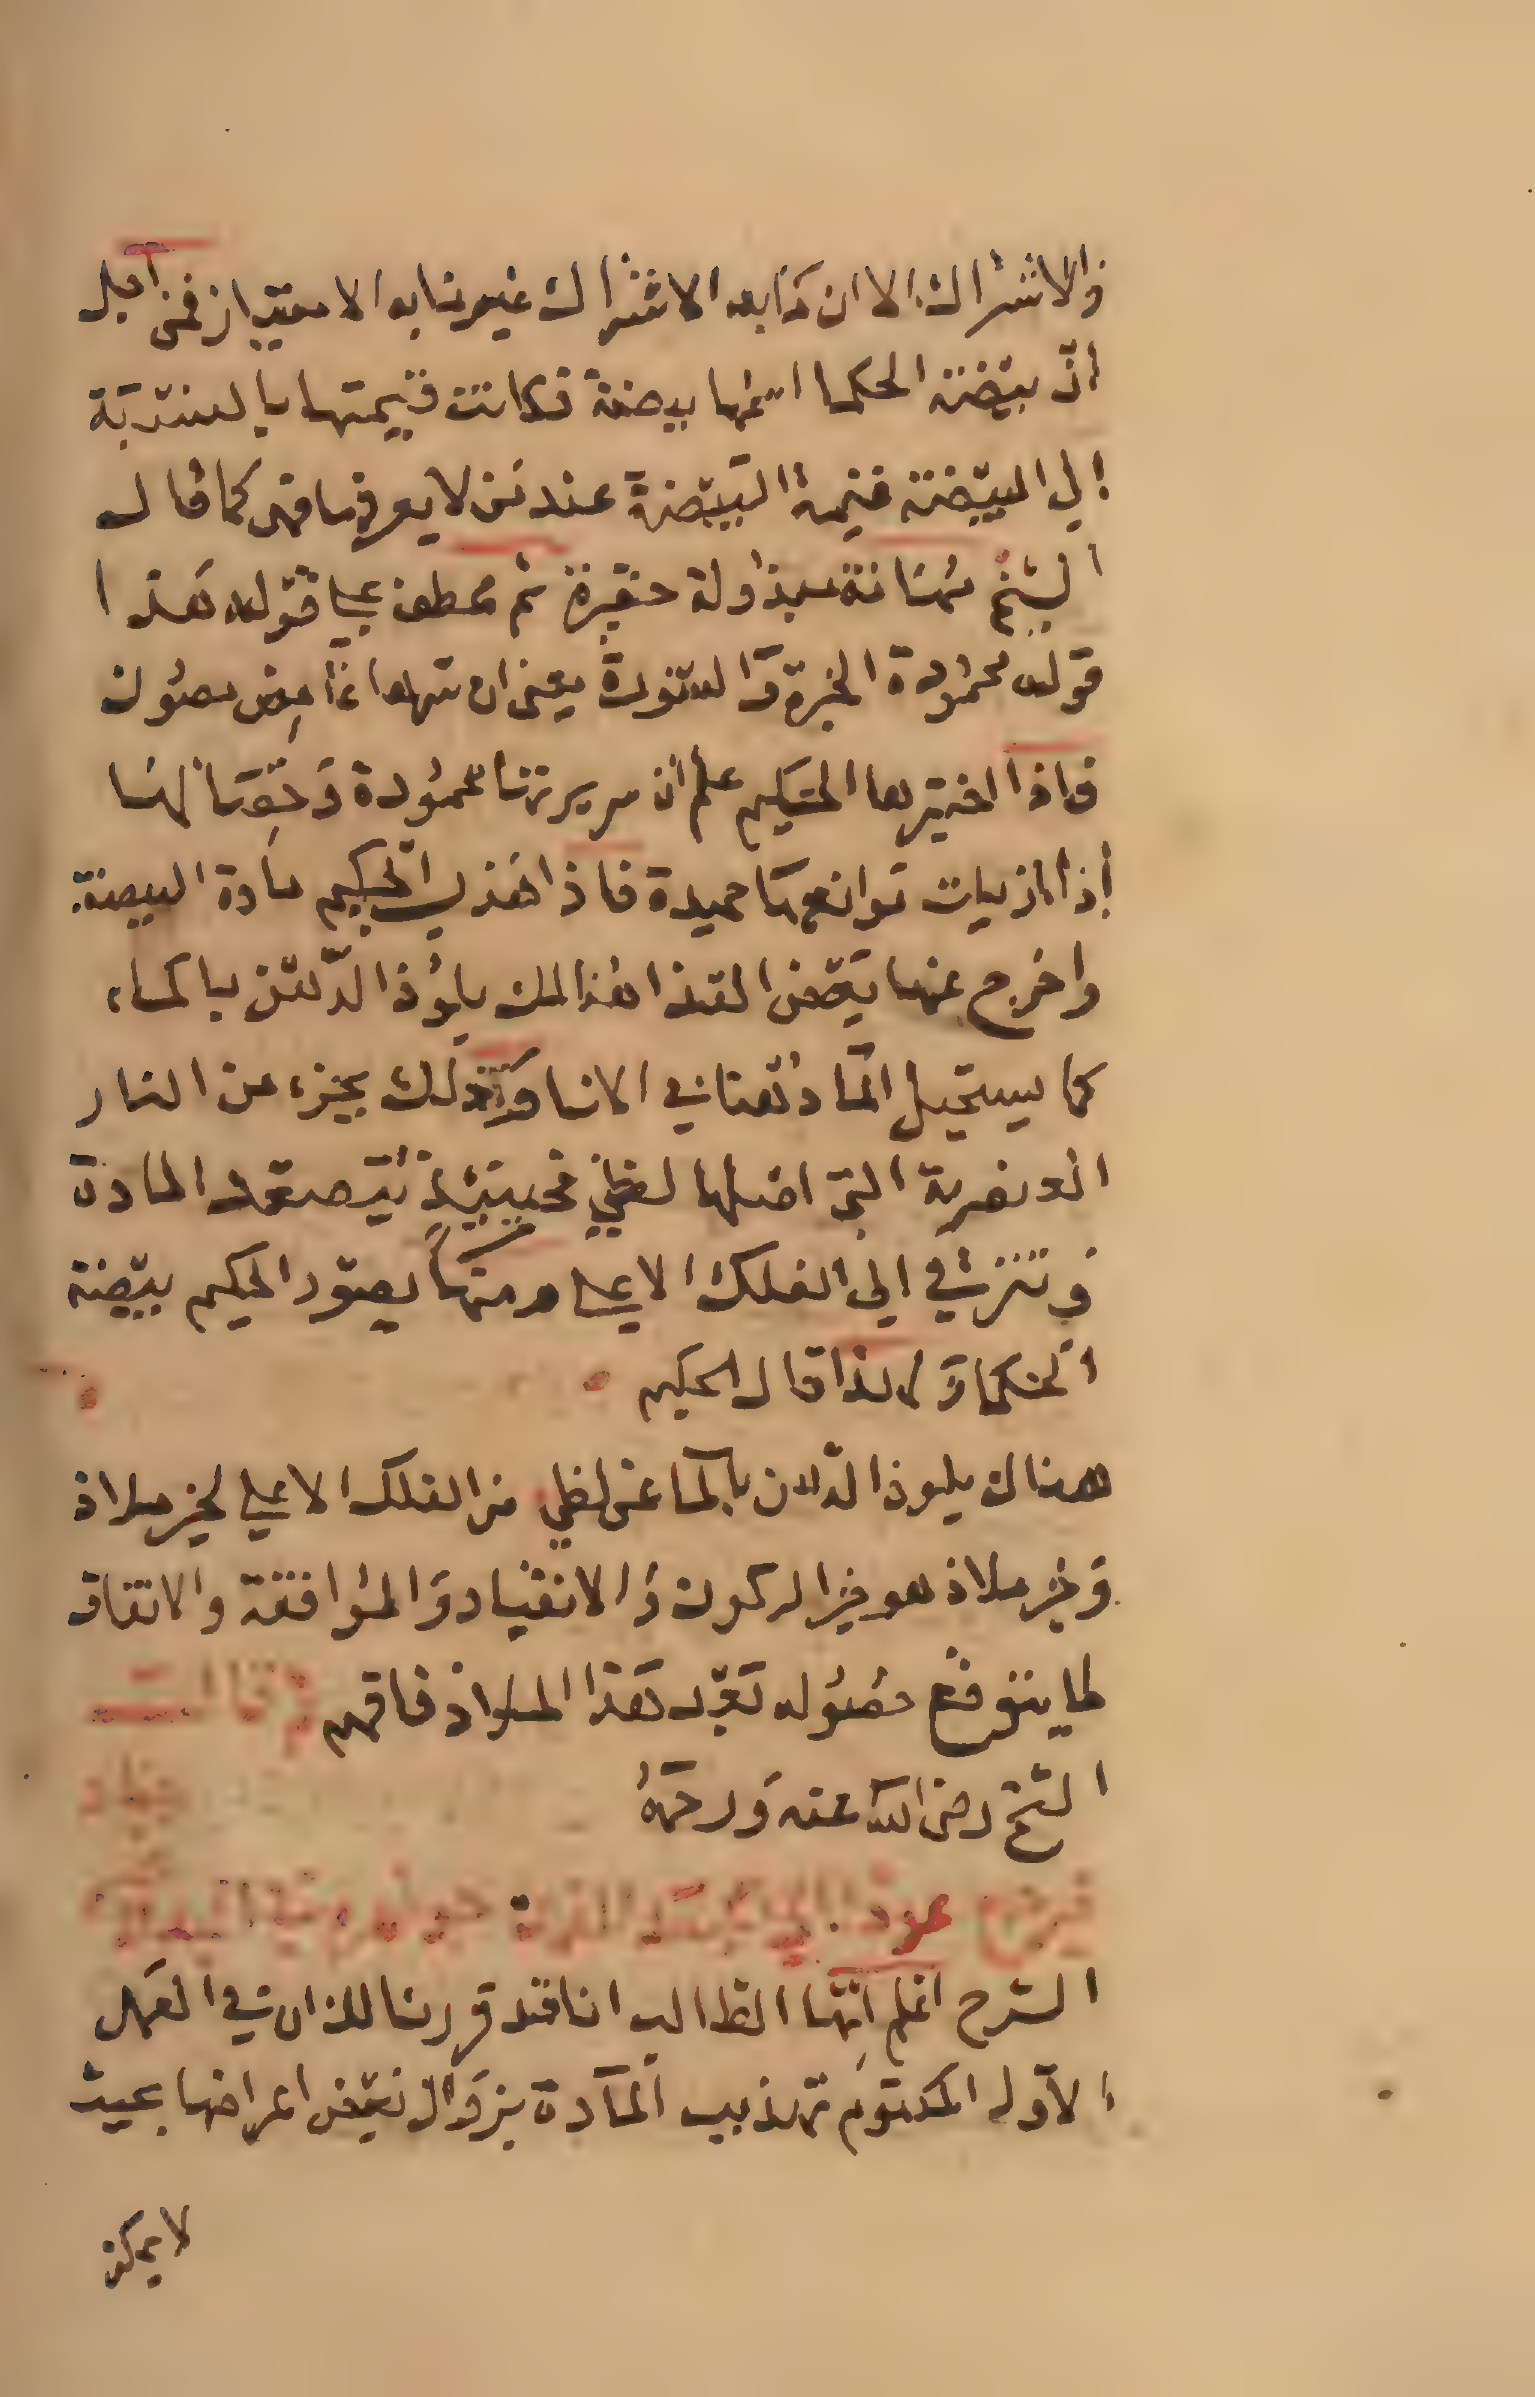 والاشراك الا ان مابه الاشتراك غير مابه الامتياز فمن اجل
ان بيضة الحكما اسمها بيضة فكانت قيمتها بالنسبة
الى البيضة قيمة البيضة عند من لا يعرف ما هى كما قال
الشيخ مهانة مبذولة حقيرة ثم عطف على قوله هذا
قوله محمودة الخبرة والعودة يعنى ان سرها غامض مصون
فاذا اختبرها الحكيم علم ان سريرتها محمودة وعوانها
اذا ازيلت موانعها حميدة فاذا هذب الحكيم مادة البيضة
واخرج عنها بعض القذا هنالك يلوذ الدهن بالماء
كما يستحيل الماء دهنا فى الانا وذلك بجزء من النار
العنصرية التى اصلها لظى فحينئذ تتصعد المادة
وتترقى الى الفلك الاعلى ومنها يصور الحكيم بيضة
الحكما ولهذا قال الحكيم
هناك يلوذ الدهن بالما عن لظى من الفلك الاعلى لخير ملاذ
وخير ملاذ هو خير الركون والانقياد والموافقة والاتفاق
لما يتوقع حصوله بعد هذا الملاذ فافهم قال
الشيخ رضى الله عنه ورحمه
الشرح اعلم ايها الطالب انا قد قررنا لك ان فى العمل
الاول المكتوم تهذيب المادة بزوال بعض اعراضها بحيث
لا يمكن